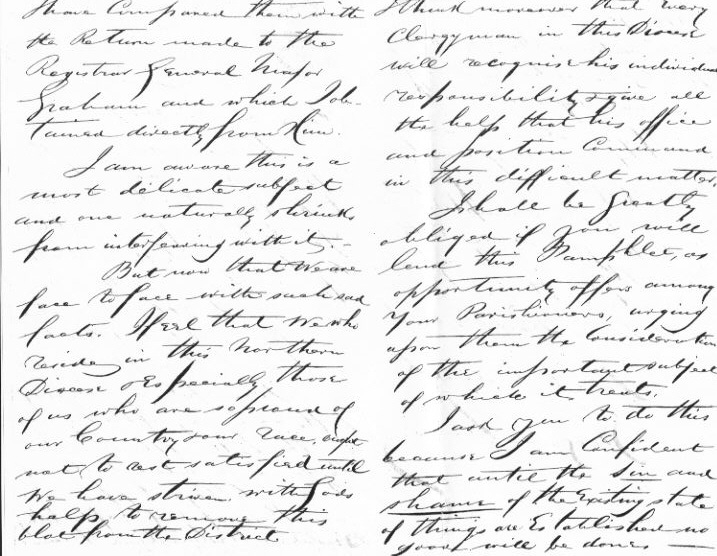 I have Compared them with
the Return made to the
Registrar General Major
Graham and which I ob-
tained directly from Him.
I am aware this is a
most delicate subject
and one naturally shrinks
from interfering with it. -
But now that we are
face to face with such sad
facts. I feel that we who
reside in this Northern
Diocese & Especially those
of us who are so proud of
our Country & our race, ought
not to rest satisfied until
We have striven with Gods
help to remove this
blot from the District
I think moreover that every
Clergyman in this Diocese
will recognise his individual
responsibility & give all
the help that his office
and position Command
in this difficult matter.
I shall be Greatly
obliged if you will
lend this Pamphlet, as
opportunity offers among
your Parishioners, urging
upon them the Consideration
of the important subject
of which it treats.
I ask you to do this
because I am Confident
that until the Sin and
shame of the Existing state
of things are Established no
good will be done. —